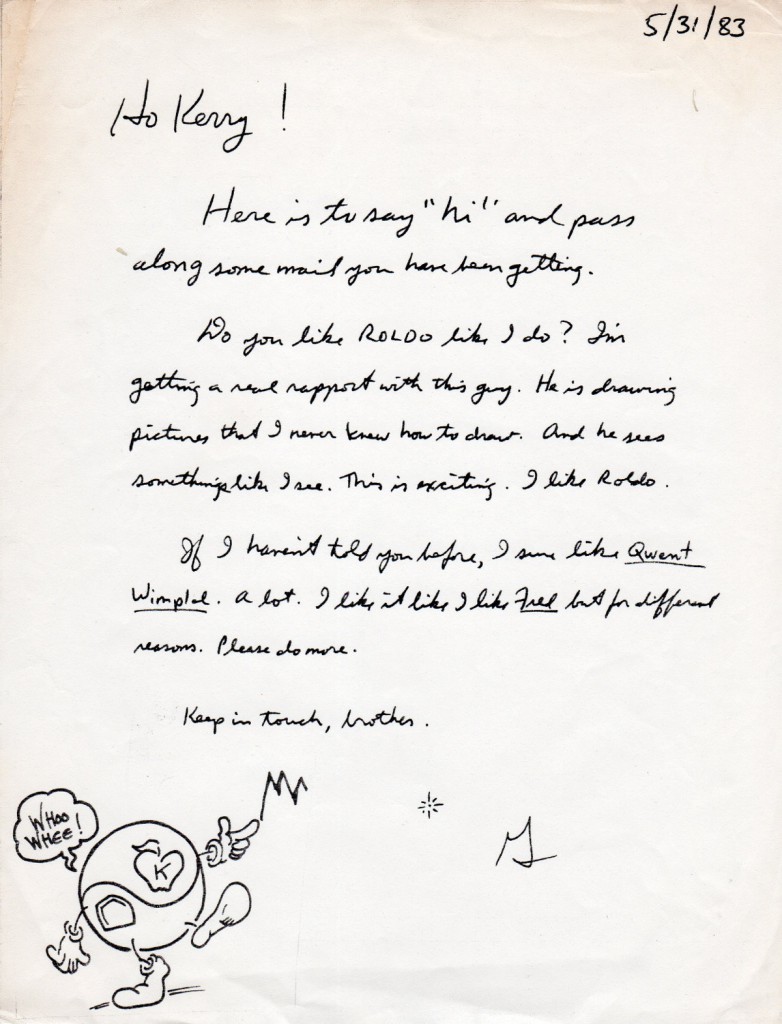 5/31/83
Ho Kerry!
Here is to say "hi" and pass
along some mail you have been getting.
Do you like ROLDO like I do? I'm
getting a real rapport with this guy. He is drawing
pictures that I never knew how to draw. And he sees
somethings like I see. This is exciting. I like Roldo.
If I haven't told you before, I sure like Qwert
Wimple. A lot. I like it like I like Fred but for different
reasons. Please do more.
Keep in touch, brother.
WHOO
WHEE!
K